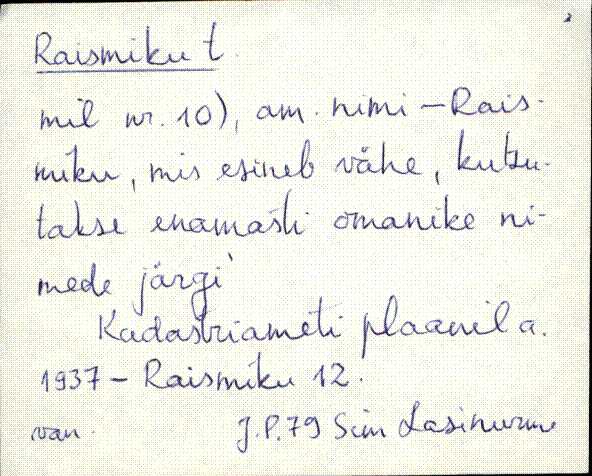 Raismiku t.
mil nr. 10), am. nimi – Rais-
miku, mis esineb vähe, kutsu-
takse enamasti omanike ni-
mede järgi
Kadastriameti plaanil a.
1937 – Raismiku 12.
van. J.P.79 Sim Lasinurme